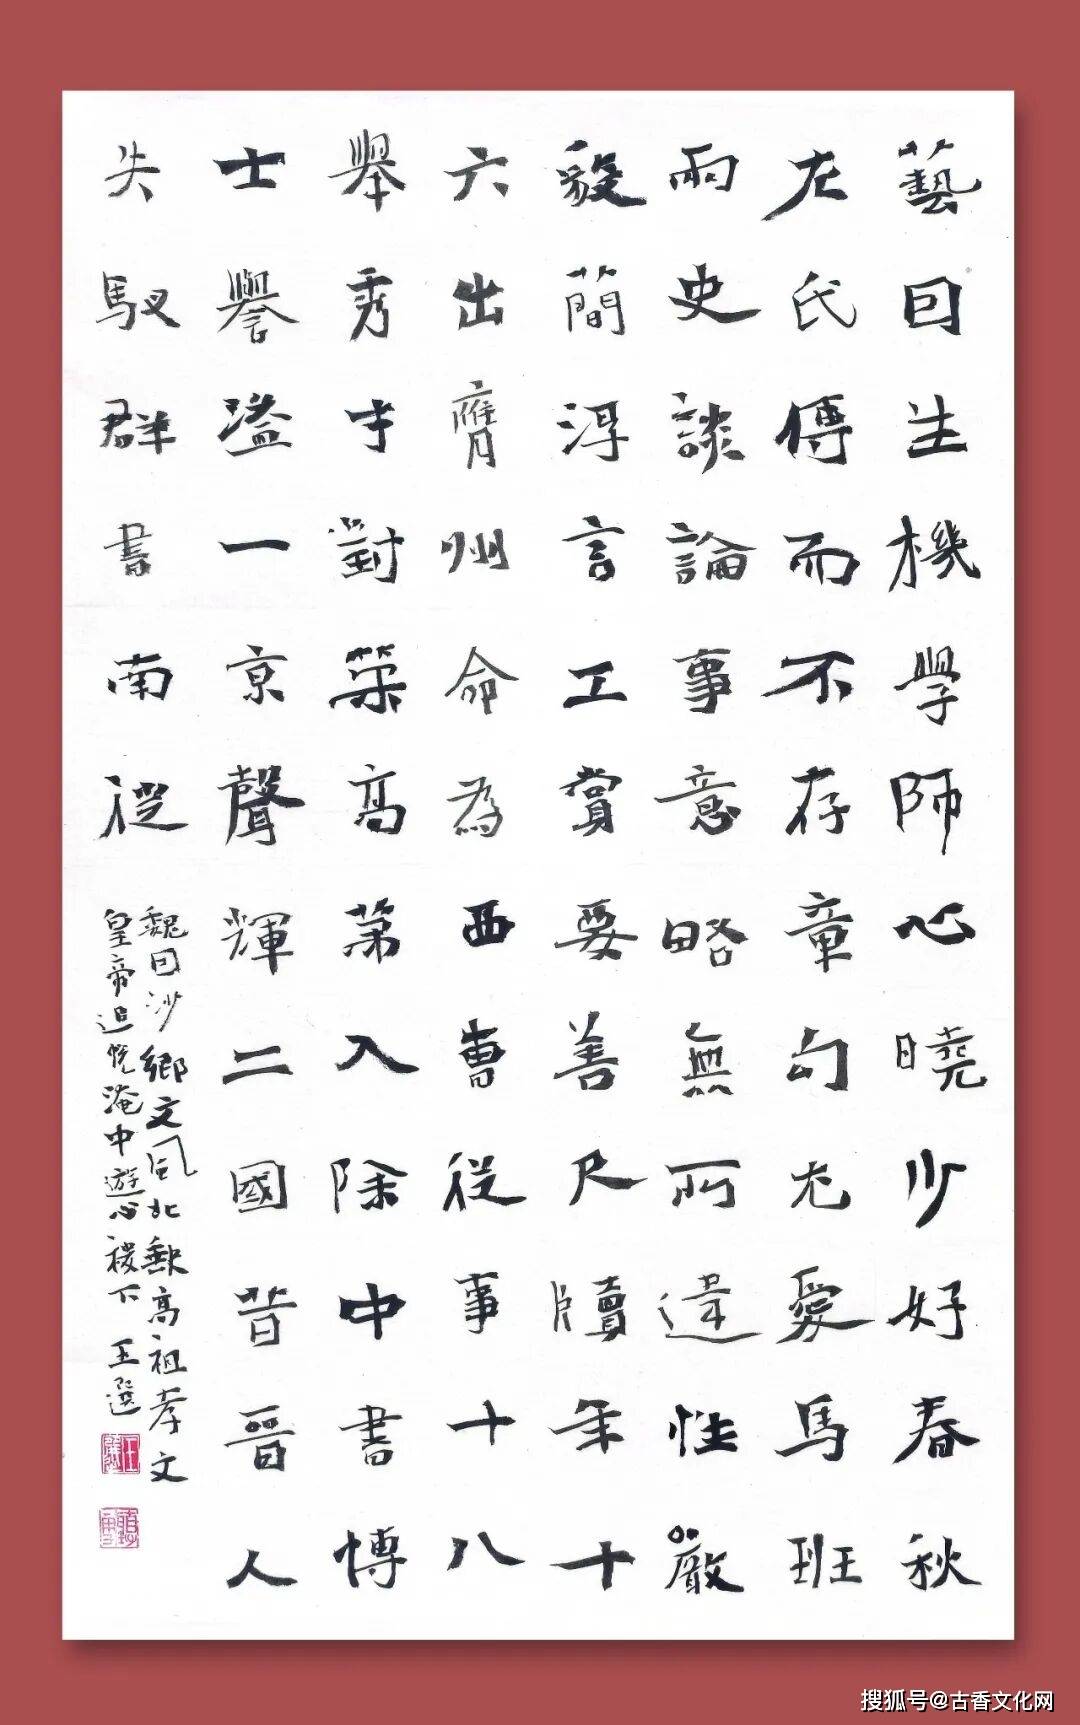 藝因生機學師心曉少好春秋
左氏傳而不存章句尤愛馬班
兩史談論事意略無所違性嚴
毅簡浮言工賞要善尺牘年十
六出膺州命為西曹從事十八
舉秀才對策高第入除中書博
士譽溢一京聲輝二國昔晉人
失馭群書南徙
魏因沙鄉文風北缺高祖孝文
皇帝追悦淹中遊心稷下 王選
搜狐号@古香文化网